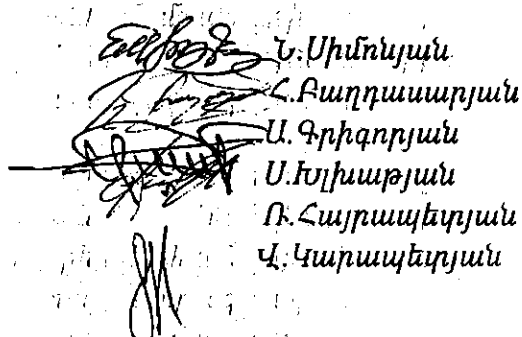 Ն.Սիմոնյան
Հ.Բաղդասարյան
Ա.Գրիգորյան
Ս.Խլխաթյան
Ռ.Հայրապետյան
Վ.Կարապետյան